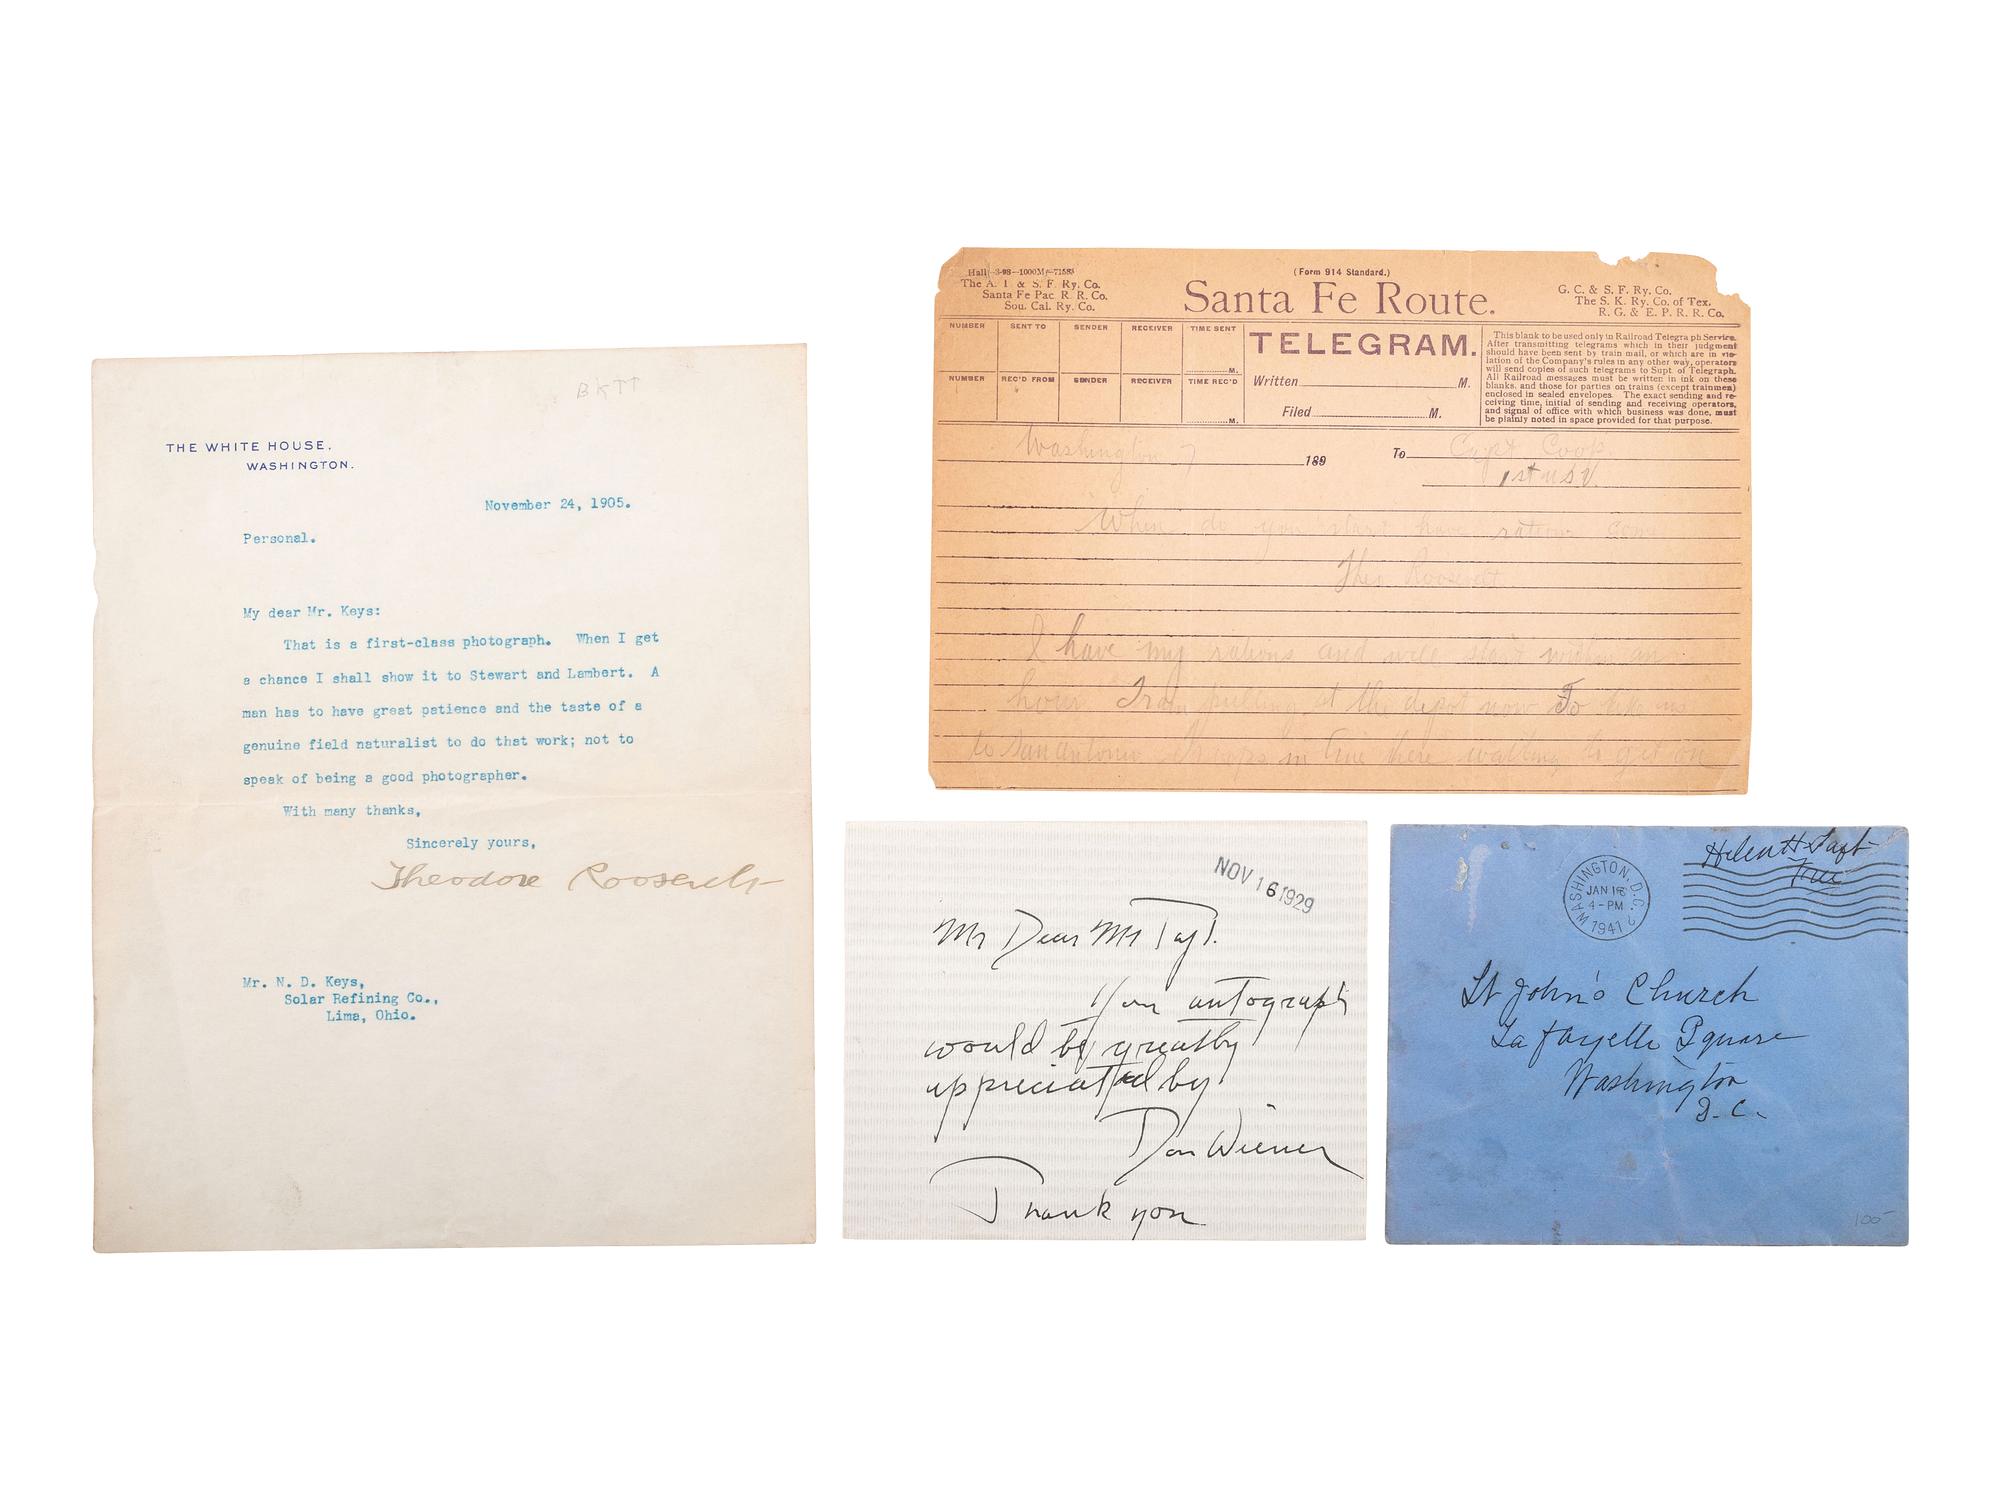 BKTT
THE WHITE HOUSE.
WASHINGTON.
November 24, 1905.
Personal.
My dear Mr. Keys:
That is a first-class photograph. When I get
a chance I shall show it to Stewart and Lambert. A
man has to have great patience and the taste of a
genuine field naturalist to do that work; not to
speak of being a good photographer.
With many thanks,
Sincerely yours,
Theodore Roosevelt
Mr. N. D. Keys,
Solar Refining Co.,
Lima, Ohio.
Hall—3-98—1000M—71585
The A. T. & S. F. Ry. Co.
Santa Fe Pac. R. R. Co.
Sou. Cal. Ry. Co.
(Form 914 Standard.)
Santa Fe Route.
G. C. & S. F. Ry. Co.
The S. K. Ry. Co. of Tex.
R. G. & E. P. R. R. Co.
NUMBER SENT TO SENDER RECEIVER TIME SENT
M.
NUMBER REC'D FROM SENDER RECEIVER TIME REC'D
M.
TELEGRAM.
Written M.
Filed M.
This blank to be used only in Railroad Telegraph Service.
After transmitting telegrams which in their judgment
should have been sent by train mail, or which are in vio-
lation of the Company's rules in any other way, operators
will send copies of such telegrams to Supt. of Telegraph.
All Railroad messages must be written in ink on these
blanks, and those for parties on trains (except trainmen)
enclosed in sealed envelopes. The exact sending and re-
ceiving time, initial of sending and receiving operators,
and signal of office with which business was done, must
be plainly noted in space provided for that purpose.
Washington 7 189 To Capt Coop
1st USV.
When do you start have rations come
Theo Roosevelt
I have my rations and will start within an
hour Train pulling at the depot now To take us
to San Antonio Troops in line there waiting to get on
NOV 16 1929
My Dear Mr Taft.
Your autograph
would be greatly
appreciated by
Don Wiener
Thank you
Helen H Taft
Free
WASHINGTON, D.C. 2
JAN 16
4-PM
1941
St John's Church
La Fayette Square
Washington
D. C.
100-